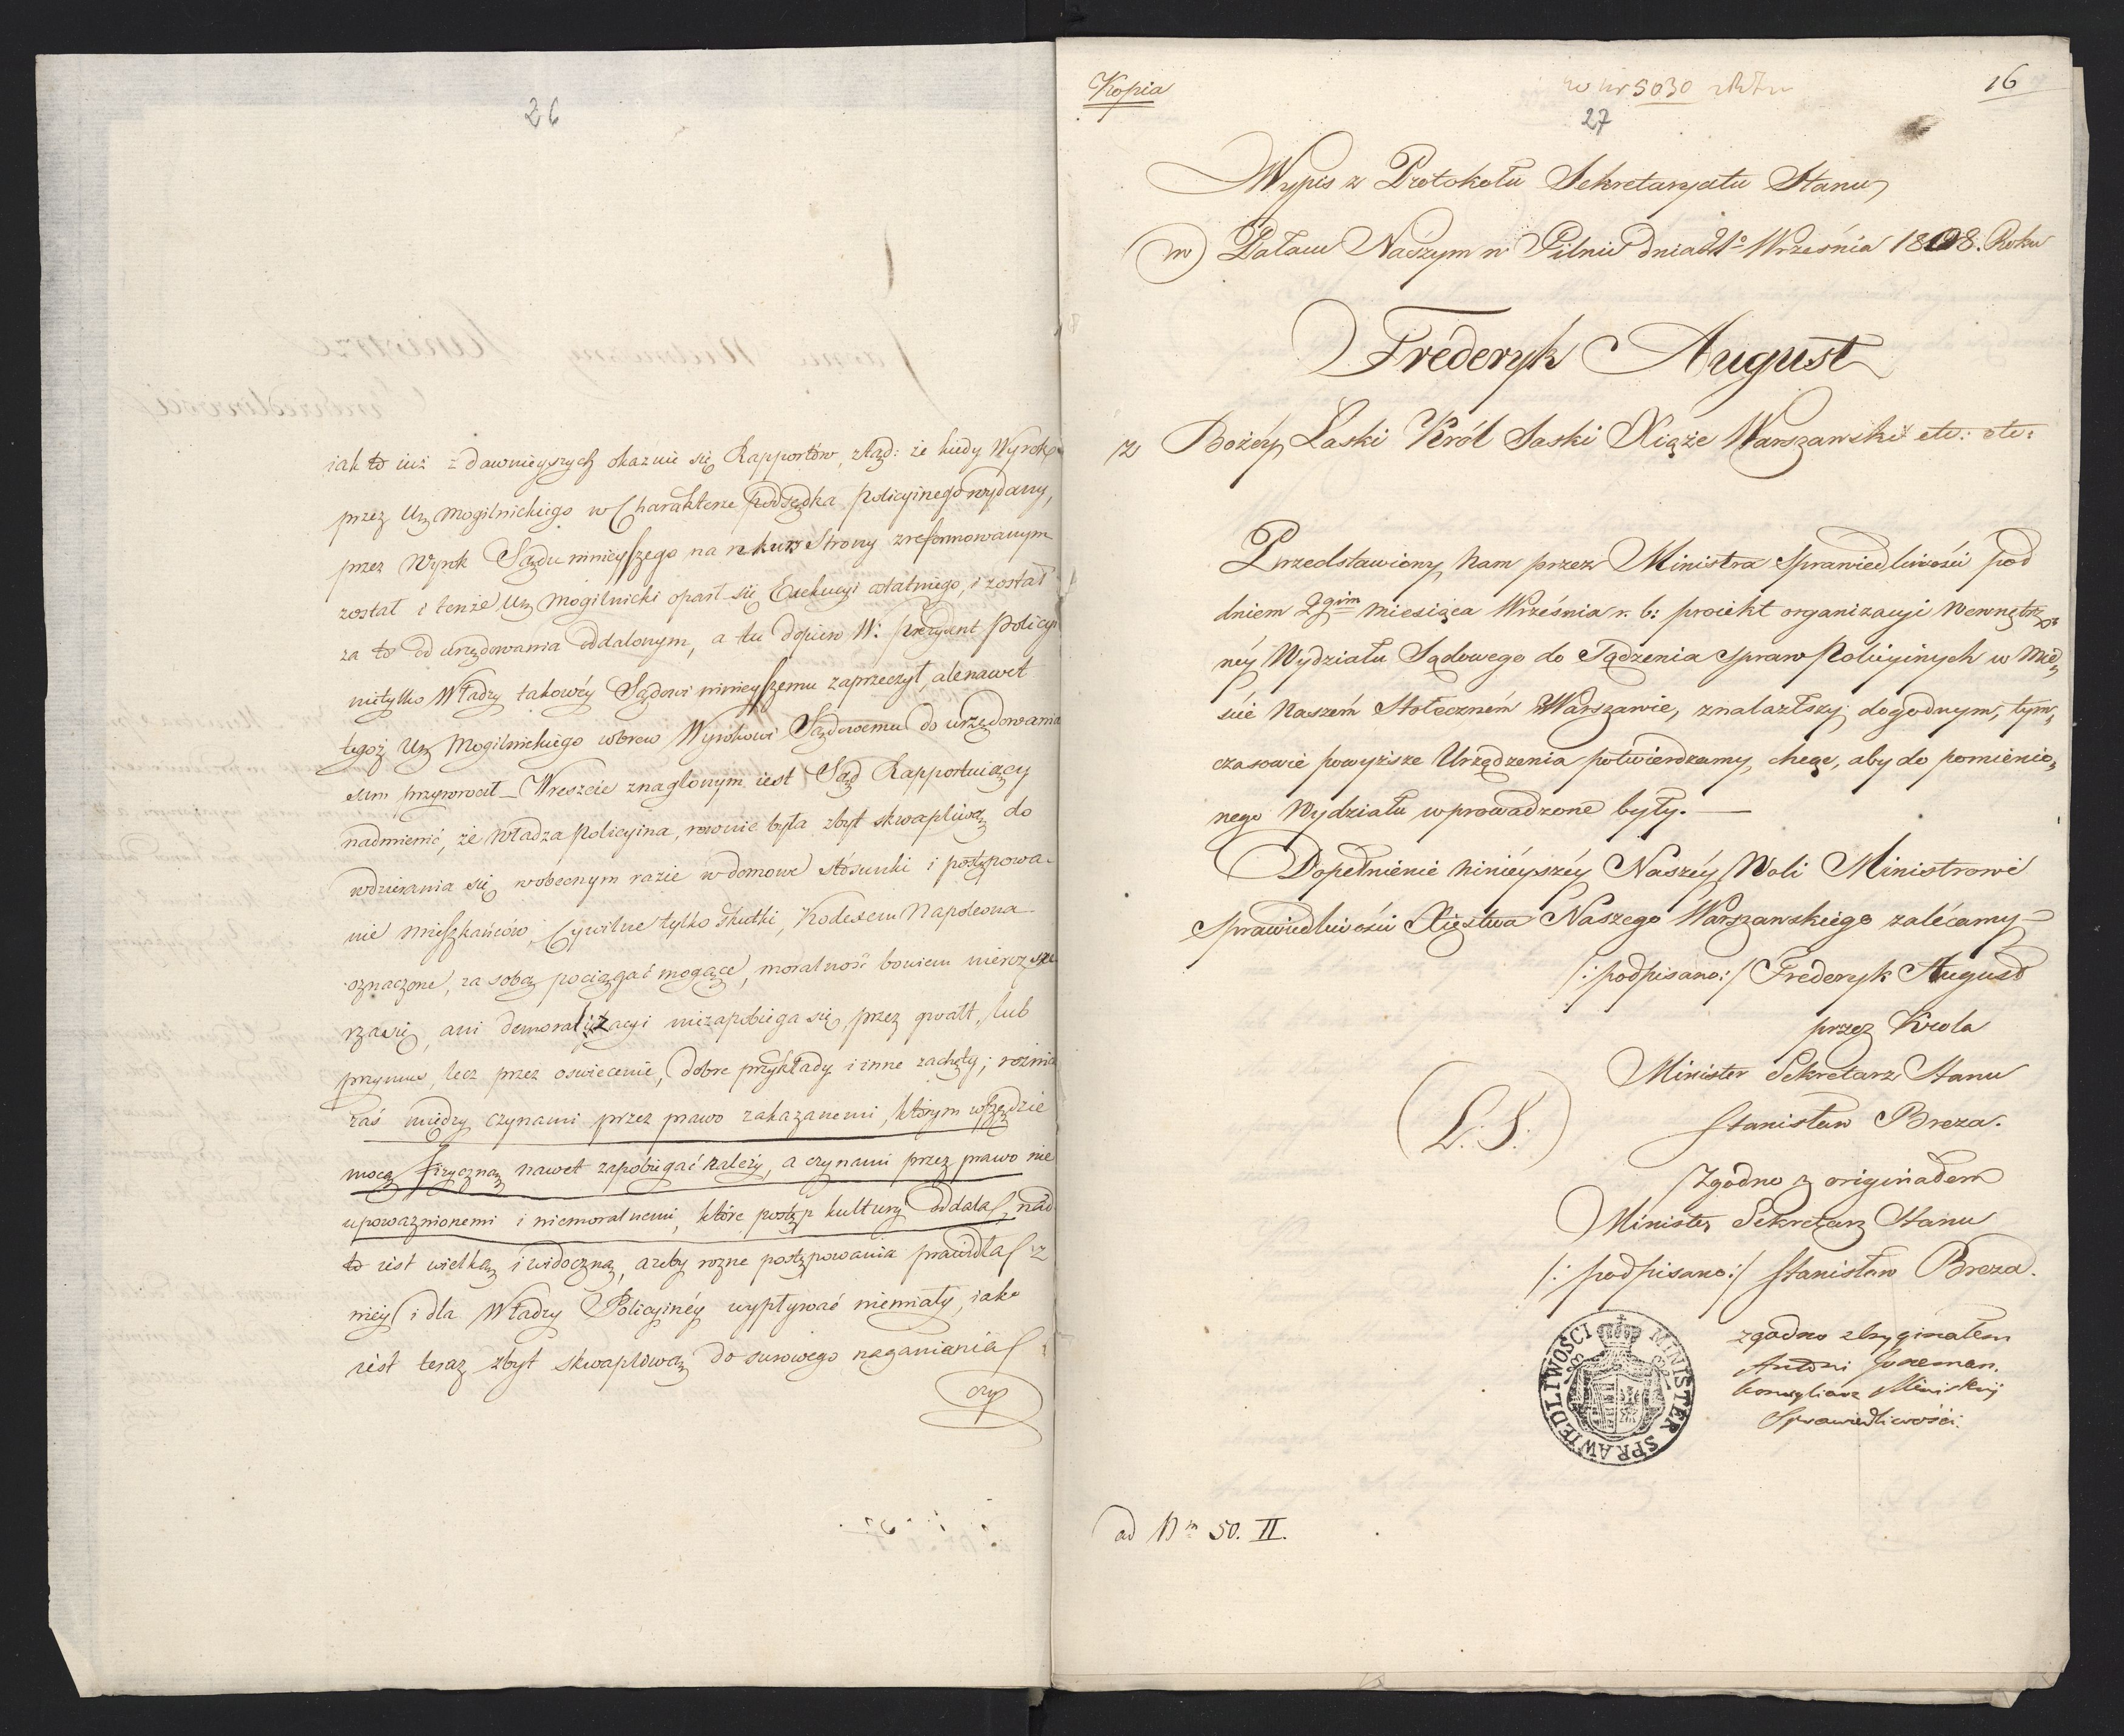 26
iak to iuż z dawnieyszych okazuie się Rapportów, ztąd: że kiedy Wyrok
przez Ur Mogilnickiego w Charakterze Podsędka policyinego wydany,
przez Wyrok Sądu ninieyszego na rekurs Strony zreformowanym
został i tenże Ur Mogilnicki oparł się Exekucyi ostatniego, i został
za to od urzędowania oddalonym, a tu dopiero W: Prezydent Policyi
nietylko Władzy takowéy Sądowi ninieyszemu zaprzeczył, ale nawet
tegoż Ur Mogilnickiego wbrew Wyrokowi Sądowemu do urzędowania
sam przywrocił – Wreszcie znaglonym iest Sąd Rapportuiący
nadmienić, że Władza Policyina, rownie była zbyt skwapliwą do
wdzierania się w obecnym razie w domowe stósunki i postępowa-
nie Mieszkańców, Cywilne tylko skutki, Kodexem Napoleona
oznaczone, za sobą pociągać mogące, moralność bowiem nierozsze
rza się, ani demoralizacyi niezapobiega się, przez gwałt, lub
przymus, lecz przez oswiecenie, dobre przykłady i inne zachęty; roznica
zaś między czynami przez prawo zakazanemi, którym wszędzie
mocą fizyczną nawet zapobiegać należy, a czynami przez prawo nie
upoważnionemi i niemoralnemi, które postęp kultury oddala, nad
to iest wielką i widoczną, ażeby rożne postępowania prawidła z
niey i dla Władzy Policyinéy wypływać niemiały, iako
iest teraz zbyt skwapliwą do surowego naganiania
czy
Kopia
16
27
Wypis z Protokołu Sekretaryatu Stanu
w Pałacu Naszym w Pilnic dnia 21º Września 1808. Roku
Frederyk August
z Bożéy Łaski Król Saski Xiąże Warszawski etc: etc:
Przedstawiony Nam przez Ministra Sprawiedliwości pod
dniem 2gim miesiąca Września r. b: proiekt organizacyi Wewnętrz-
néy Wydziału Sądowego do Sądzenia Spraw Policyinych w Mie-
ście Naszém Stołeczném Warszawie, znalazłszy dogodnym, tym-
czasowie powyższe Urządzenia potwierdzamy, chcąc, aby do pomienio-
nego Wydziału wprowadzone były. —
Dopełnienie Ninieyszéy Naszéy Woli Ministrowi
Sprawiedliwości Xięstwa Naszego Warszawskiego zalécamy –
/: podpisano:/ Frederyk August
przez Krola
Minister Sekretarz Stanu
(L: S:)
Stanisław Breza.
Zgodno z originałem
Minister Sekretarz Stanu
/: podpisano:/ Stanisław Breza.
MINISTER SPRAWIEDLIWOŚCI
zgodno z oryginałem
Antoni
Konsyliarz
Sprawiedliwości.
ad Nm 50. II.